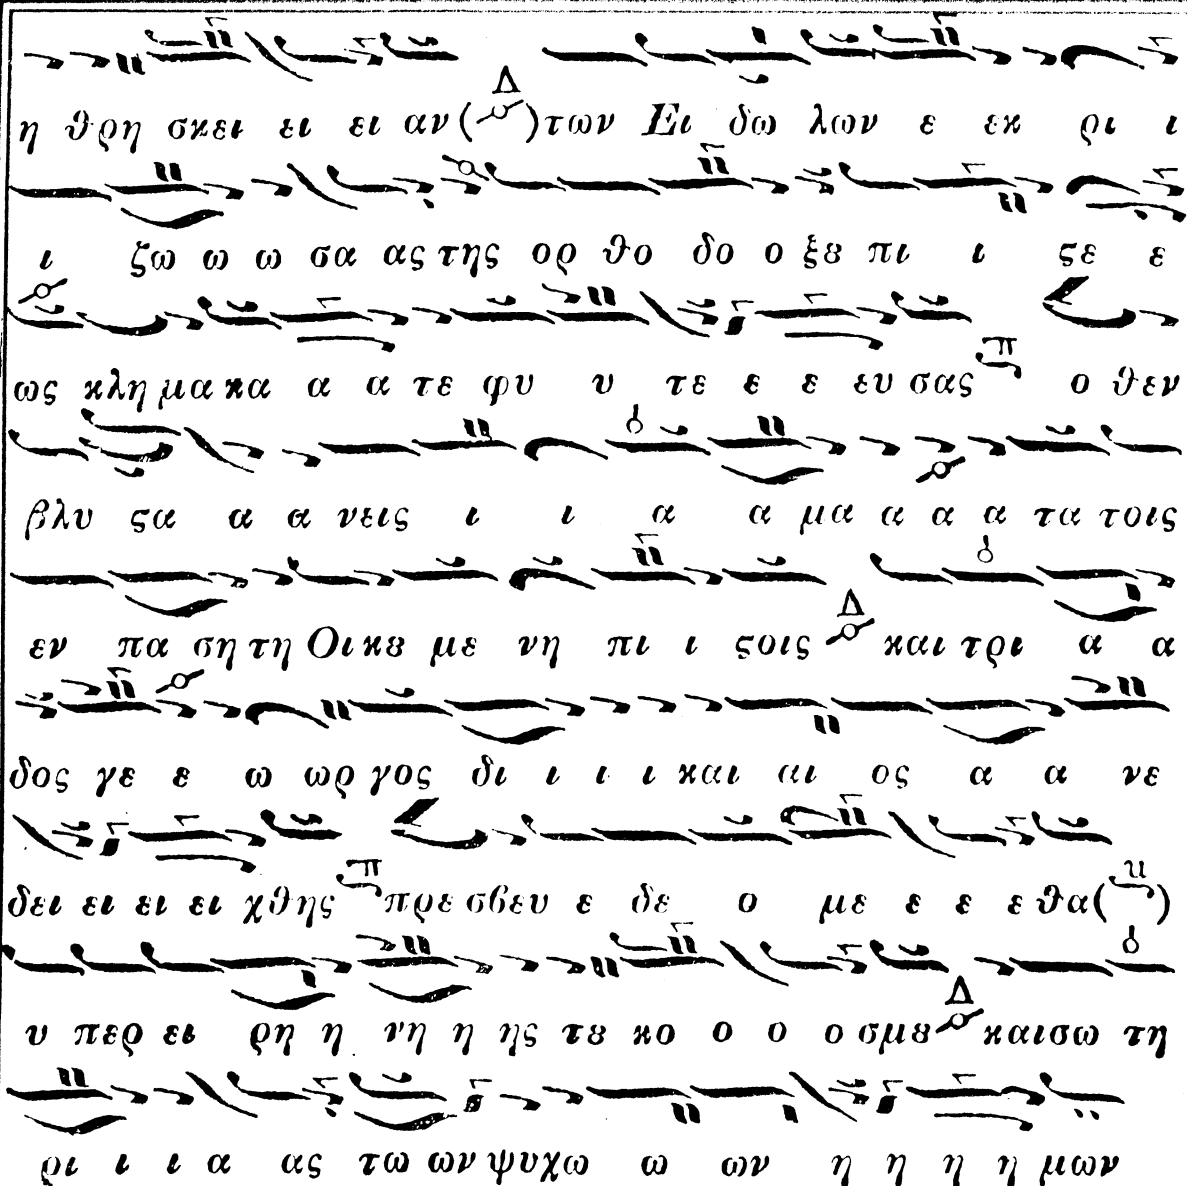 η θρη σκει ει ει αν (Δ) των Ει δω λων ε εκ ρι ι
ι ζω ω ω σα ας της ορ θο δο ο ξȣ πι ι ϛε ε
ως κλη μα κα α α τε φυ υ τε ε ε ευ σας π ο θεν
βλυ ϛα α α νεις ι ι α α μα α α α τα τοις
εν πα ση τη Οι κȣ με νη πι ι ϛοις Δ και τρι α α
δος γε ε ω ωρ γος δι ι ι ι και αι ος α α νε
δει ει ει ει χθης π πρε σβευ ε δε ο με ε ε ε θα ( )
υ περ ει ρη η νη η ης τȣ κο ο ο ο σμȣ Δ και σω τη
ρι ι ι α ας τω ων ψυχω ω ων η η η η μων